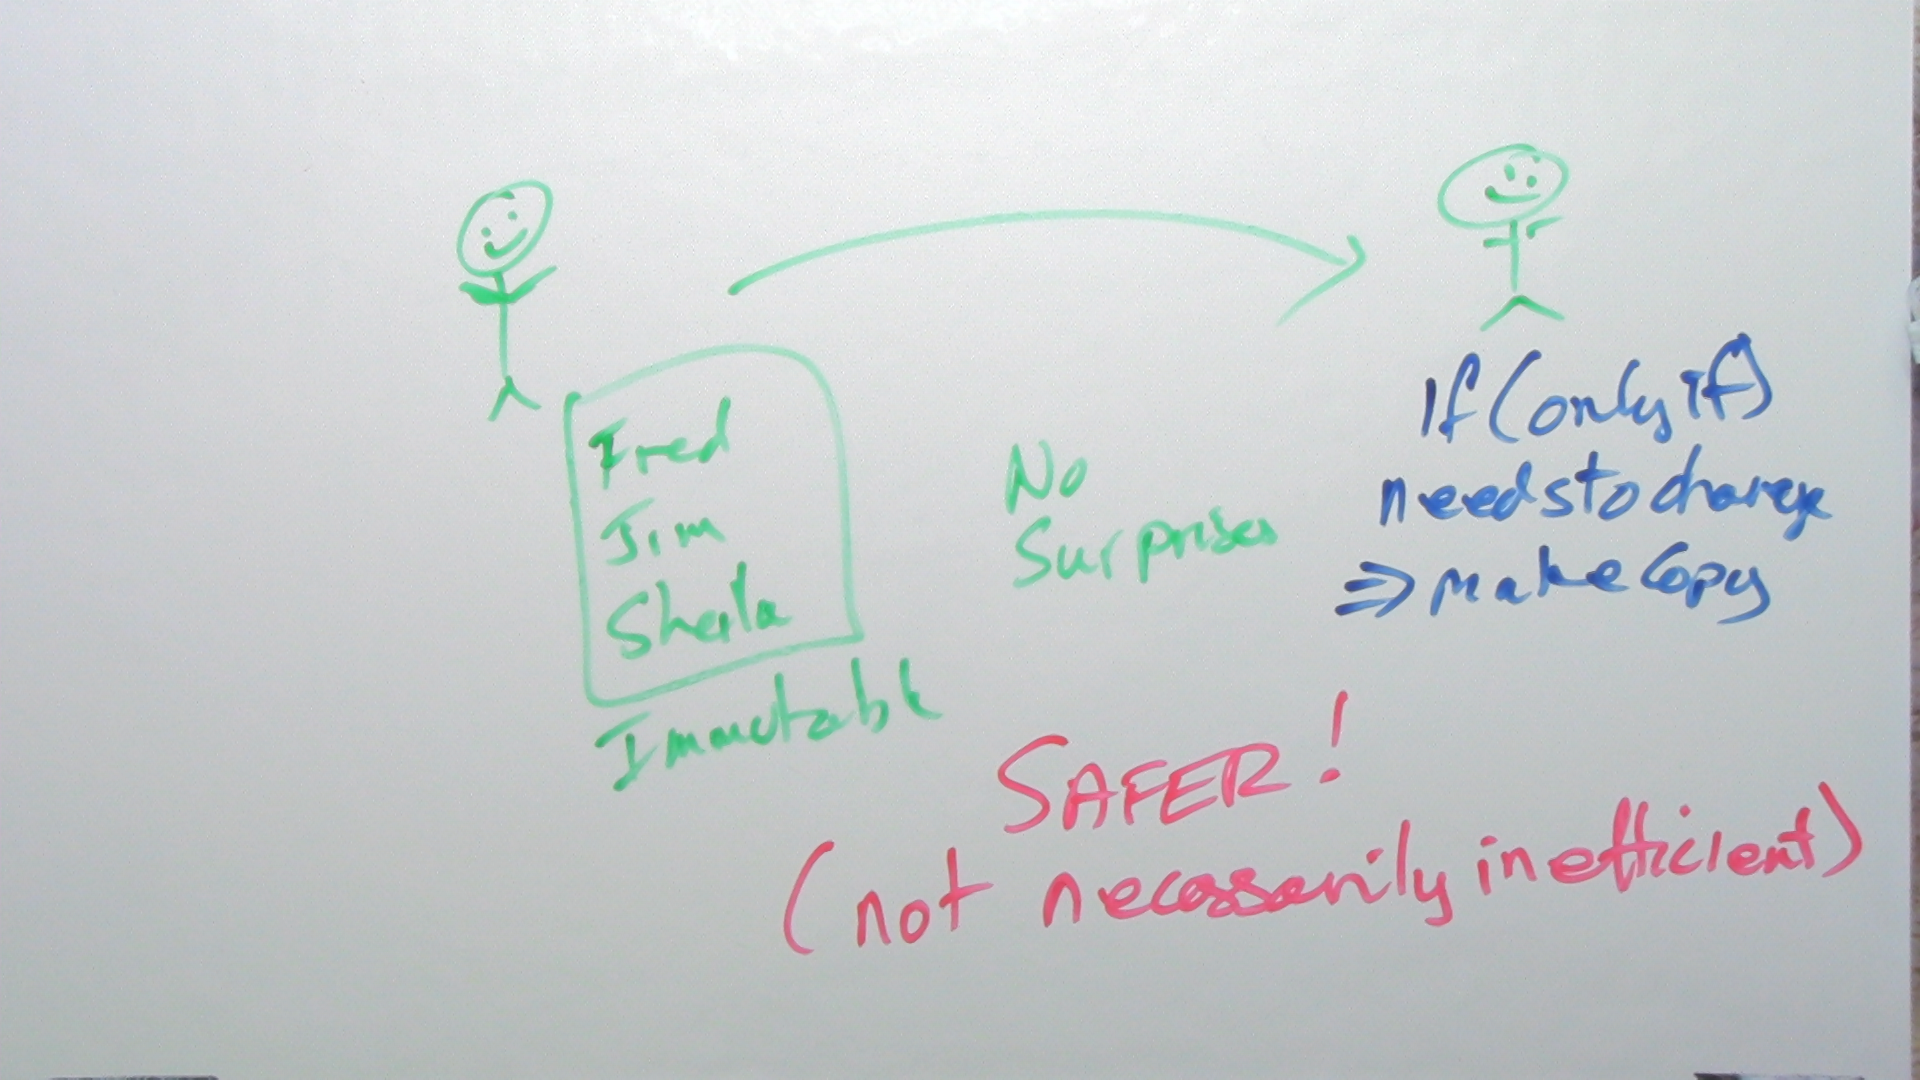 Fred
Jim
Sheila
Immutable
No
Surprises
If (only if)
needs to change
⇒ make copy
SAFER!
(not necessarily inefficient)